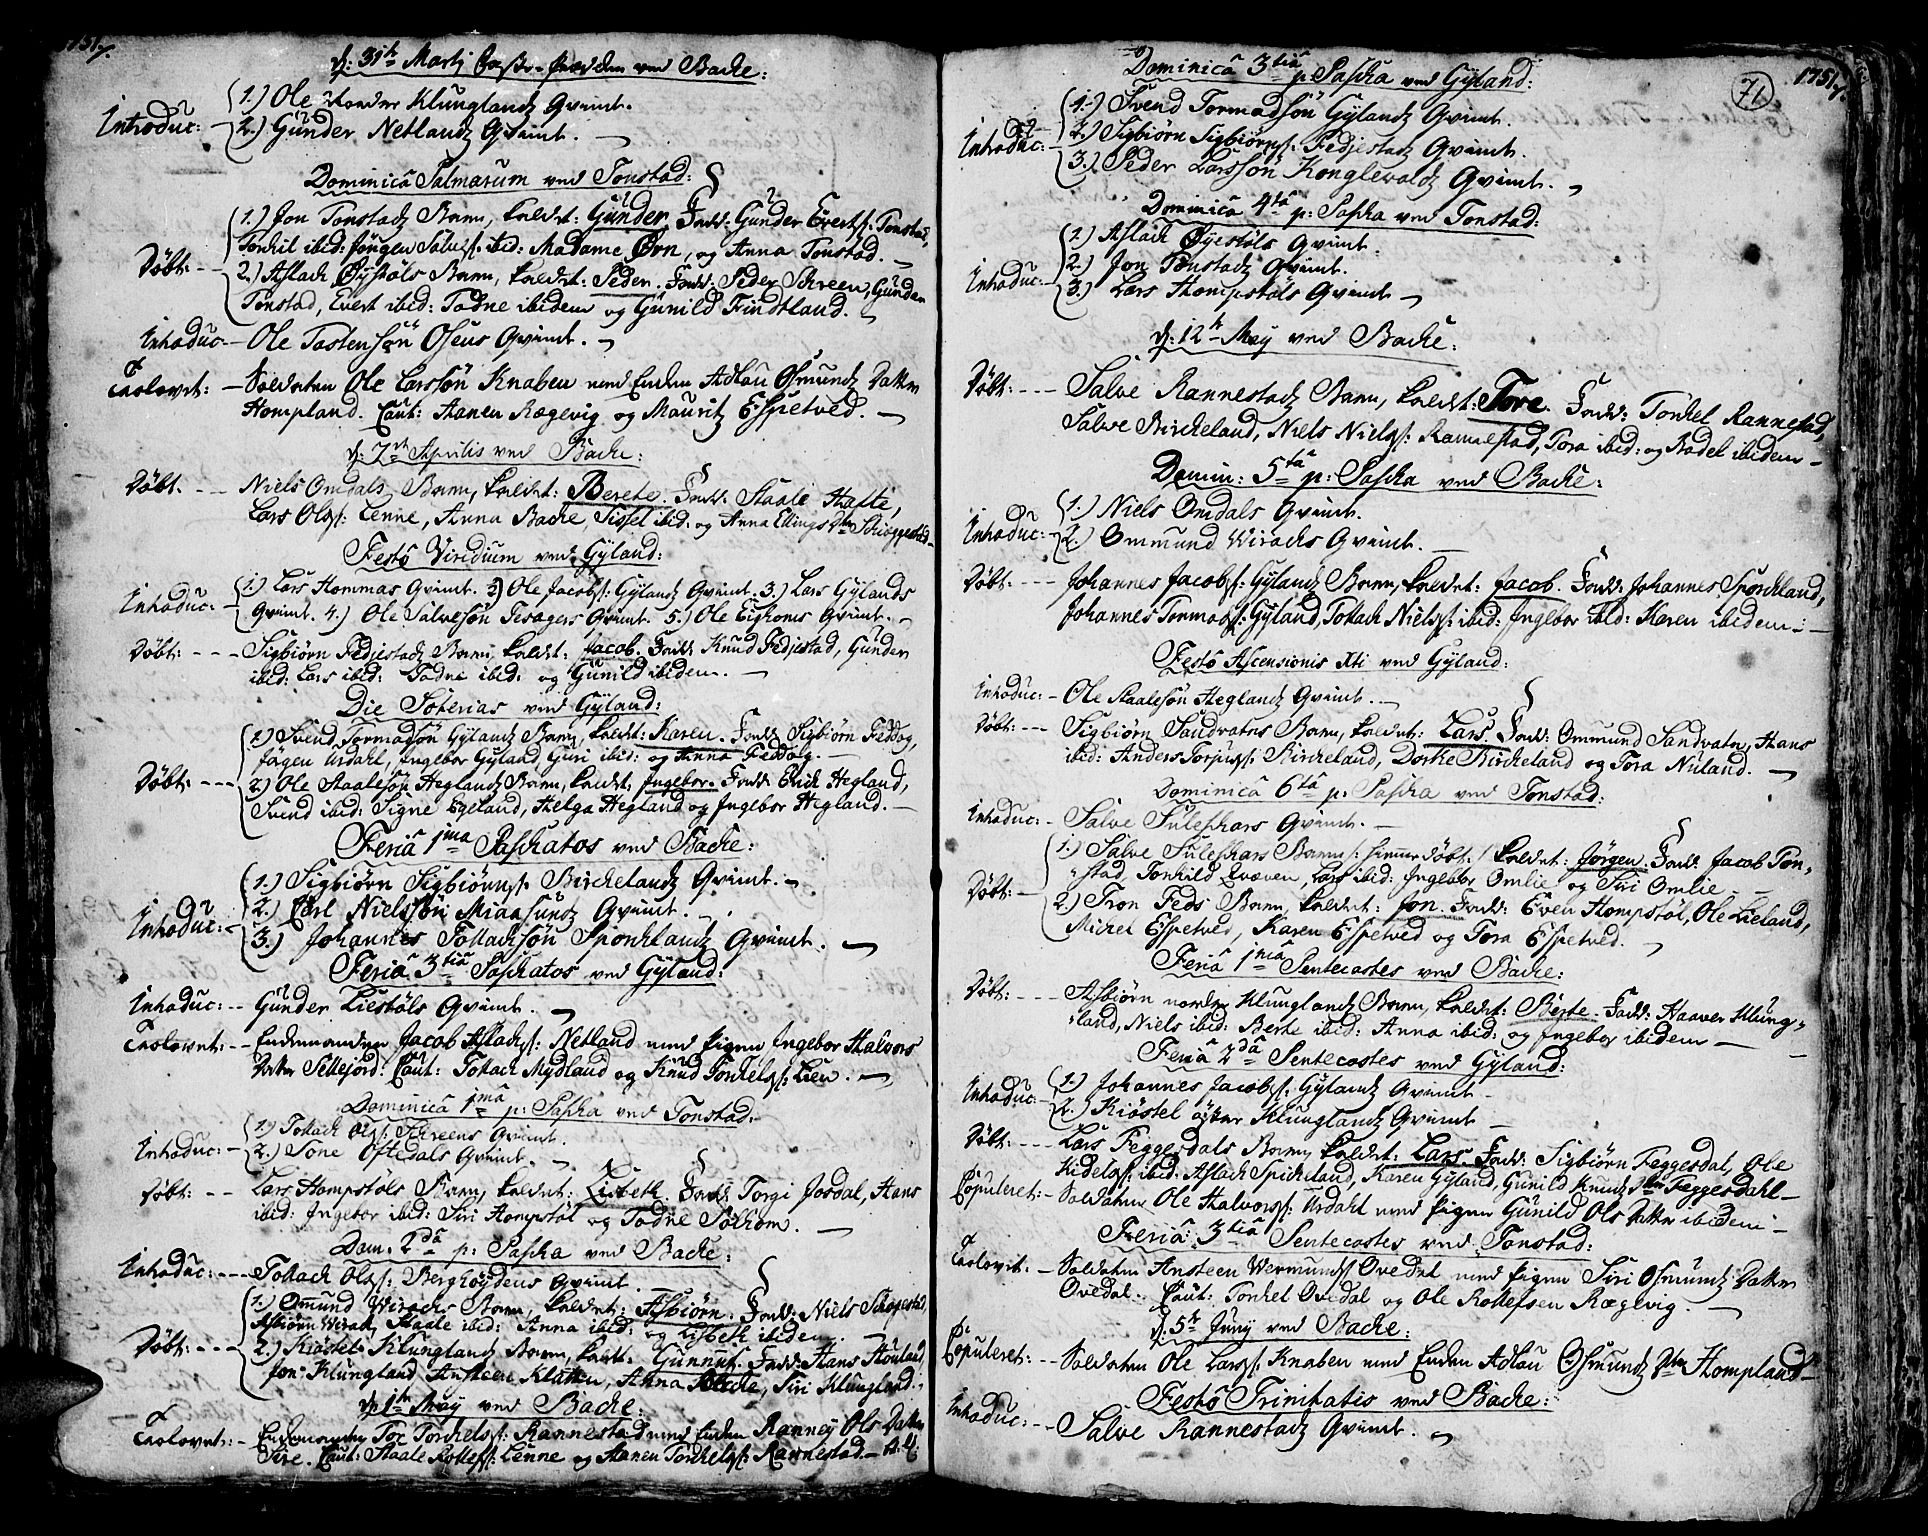 1751.
d: 31te Martj Faste-Præken ved Backe:
Introduc: 1.) Ole Klunglandz Qvinde.
2.) Günder Netlandz Qvinde.
Dominica Palmarum ved Tonstad:
Döbt: 1.) Jon Tonstadz Barn, kaldet: Günder. Fadd: Gunder Evertss: Tonstad,
Torkil ibid: Jörgen Salvess: ibid: Madame Ørn, og Anna Tonstad.
2.) Aslach Öÿstöls Barn, kaldet: Peder. Fadd: Peder Schreen, Günder
Tonstad, Evert ibid: Todne ibidem og Günild Findtland.
Introduc: Ole Tostensön Oseus Qvinde.
Trolovet: Soldaten Ole Larssön Knaben med Enken Adlau Osmundz Datter
Hompland. Caut: Hanen Rægevig og Mauritz Espetved.
d: 7de Aprilis ved Backe:
Döbt: Niels Omdals Barn, kaldet: Berete. Fadd: Staale Hafte,
Lars Olss: Lenne, Anna Backe, Sissel ibid: og Anna Ellings Dtr Schreggestad
Festô Viridium ved Gÿland:
Introduc: 1.) Lars Hommas Qvinde. 2) Ole Jacobss: Gÿlandz Qvinde. 3.) Lars Gÿlands
Qvinde. 4.) Ole Salvesön Tesagers Qvinde. 5.) Ole Eighoms Qvinde.
Döbt: Sigbiörn Fedjestadz Barn, kaldet: Jacob. Fadd: Knud Fedjestad, Günder
ibid: Lars ibid: Todne ibid: og Günild ibidem.
Die Soterias ved Gÿland:
Döbt: 1.) Svend Tormodsön Gÿlandz Barn, kaldet: Karen. Fadd: Sigbiörn Feddog,
Jörgen Urdahl, Ingebor Gÿland, Guri ibid: og Anna Feddog.
2.) Ole Staalesön Heglandz Barn, kaldet: Ingebor. Fadd: Erich Hegland,
Svend ibid: Signe Egeland, Helga Hegland og Ingebor Hegland.
Feria 1ma Paschatos ved Backe:
Introduc: 1.) Sigbiörn Sigbiörnss: Birchelandz Qvinde.
2.) Carl Nielssön Miaasundz Qvinde.
3.) Johannes Tollachsön Sporchlandz Qvinde.
Feria 3tia Paschatos ved Gÿland:
Introduc: Günder Liestöls Qvinde.
Trolovet: Enkemanden Jacob Aslachss: Netland med Pigen Ingebor Halvors
Datter Sellejord: Caut: Tollach Mydland og Knud Torkelss: Lien.
Dominica 1ma p: Pascha ved Tonstad:
Introduc: 1.) Tollach Olss: Schreens Qvinde.
2.) Tone Oftedals Qvinde.
Döbt: Lars Hompstöls Barn, kaldet: Lisbeth. Fadd: Torgi Josdal, Hans
ibid: Ingebor ibid: Siri Hompstöl og Todne Solhom.
Dom: 2da p: Pascha ved Backe:
Introduc: Tollach Olss: Berghöydens Qvinde.
Döbt: 1.) Ommund Wirachs Barn, kaldet: Asbiörn. Fadd: Niels Schopestad,
Asbiörn Wirak, Staale ibid: Anna ibid: og Lisbeth ibidem.
2.) Kiöstel Klunglandz Barn, kaldet: Gunnuf. Fadd: Hans Houland,
Jon Klungland, Ansteen Klatten, Anna Backe, Siri Klungland.
d: 1te May ved Backe:
Trolovet: Enkemanden Tore Torchelss: Rannestad med Enken Ranney Ols Datter
Sire. Caut: Staale Rollefss: Lenne og Hanen Torchelss: Rannestad
71
1751.
Dominica 3tia p: Pascha ved Gÿland:
Introduc: 1.) Svend Tormodsön Gÿlandz Qvinde.
2.) Sigbiörn Sigbiörnss: Fedjestadz Qvinde.
3.) Peder Larssön Konglevolds Qvinde.
Dominica 4ta p: Pascha ved Tonstad:
Introduc: 1.) Aslach Öyestöls Qvinde.
2.) Jon Tonstadz Qvinde.
3.) Lars Hompstöls Qvinde
d: 12te May ved Backe:
Döbt: Salve Rannestadz Barn, kaldet: Tore. Fadd: Torkel Rannestad,
Salve Bircheland, Niels Nielss: Ramelstad, Tora ibid: og Radel ibidem
Domin: 5ta p: Pascha ved Backe:
Introduc: 1.) Niels Omdals Qvinde.
2.) Ommund Wirachs Qvinde.
Döbt: Johannes Jacobss: Gÿlandz Barn, kaldet: Jacob. Fadd: Johannes Sporchland,
Johannes Tormodss: Gÿland, Tollach Nielss: ibid: Ingebor ibid: Karen ibidem
Festô Ascensionis Xti ved Gÿland:
Introduc: Ole Staalesön Heglandz Qvinde.
Döbt: Sigbiörn Sandvatns Barn, kaldet: Lars. Fadd: Ommund Sandvatn, Hans
ibid: Anders Torjuss: Kircheland, Dorthe Kircheland og Tora Nuland.
Dominica 6ta p: Pascha ved Tonstad:
Introduc: Salve Suleschars Qvinde.
Döbt: 1.) Salve Suleschars Barn /: hiemmedöbt: / kaldet: Jörgen. Fadd: Jacob Ton-
stad, Torkild Qvæven, Lars ibid: Ingebor Omlie og Siri Omlie
2.) Tron Feds Barn, kaldet: Jon. Fadd: Even Hompstöl, Ole Lieland,
Michel Espetved, Karen Espetved og Tora Espetved.
Feria 1ma Pentecostes ved Backe:
Döbt: Asbiörn norden Klunglandz Barn, kaldet: Berte. Fadd: Haaver Klung-
land, Niels ibid: Berte ibid: Anna ibid: og Ingebor ibidem
Feria 2da Pentecostes ved Gÿland:
Introduc: 1.) Johannes Jacobss: Gÿlandz Qvinde
2.) Kiöstel öster Klunglandz Qvinde
Döbt: Lars Feggesdals Barn, kaldet: Lars. Fadd: Sigbiörn Feggesdal, Ole
Kidelss: ibid: Aslach Spickeland, Karen Gÿland, Günild Knudz Dtr Feggesdahl
Copuleret: Soldaten Ole Halvorss: Urdahl med Pigen Günild Ols Datter ibidem
Feria 3tia Pentecostes ved Tonstad:
Trolovit: Soldaten Ansteen Wermundss: Ovedal med Pigen Siri Osmundz Datter
Ovedal. Caut: Torkel Ovedal og Ole Rollefsen Rægevig.
d: 5te Junÿ ved Backe:
Copuleret: Soldaten Ole Larss: Knaben med Enken Adlau Osmundz Dtr Hompland
Festô Trinitatis ved Backe:
Introduc: Salve Rannestadz Qvinde.